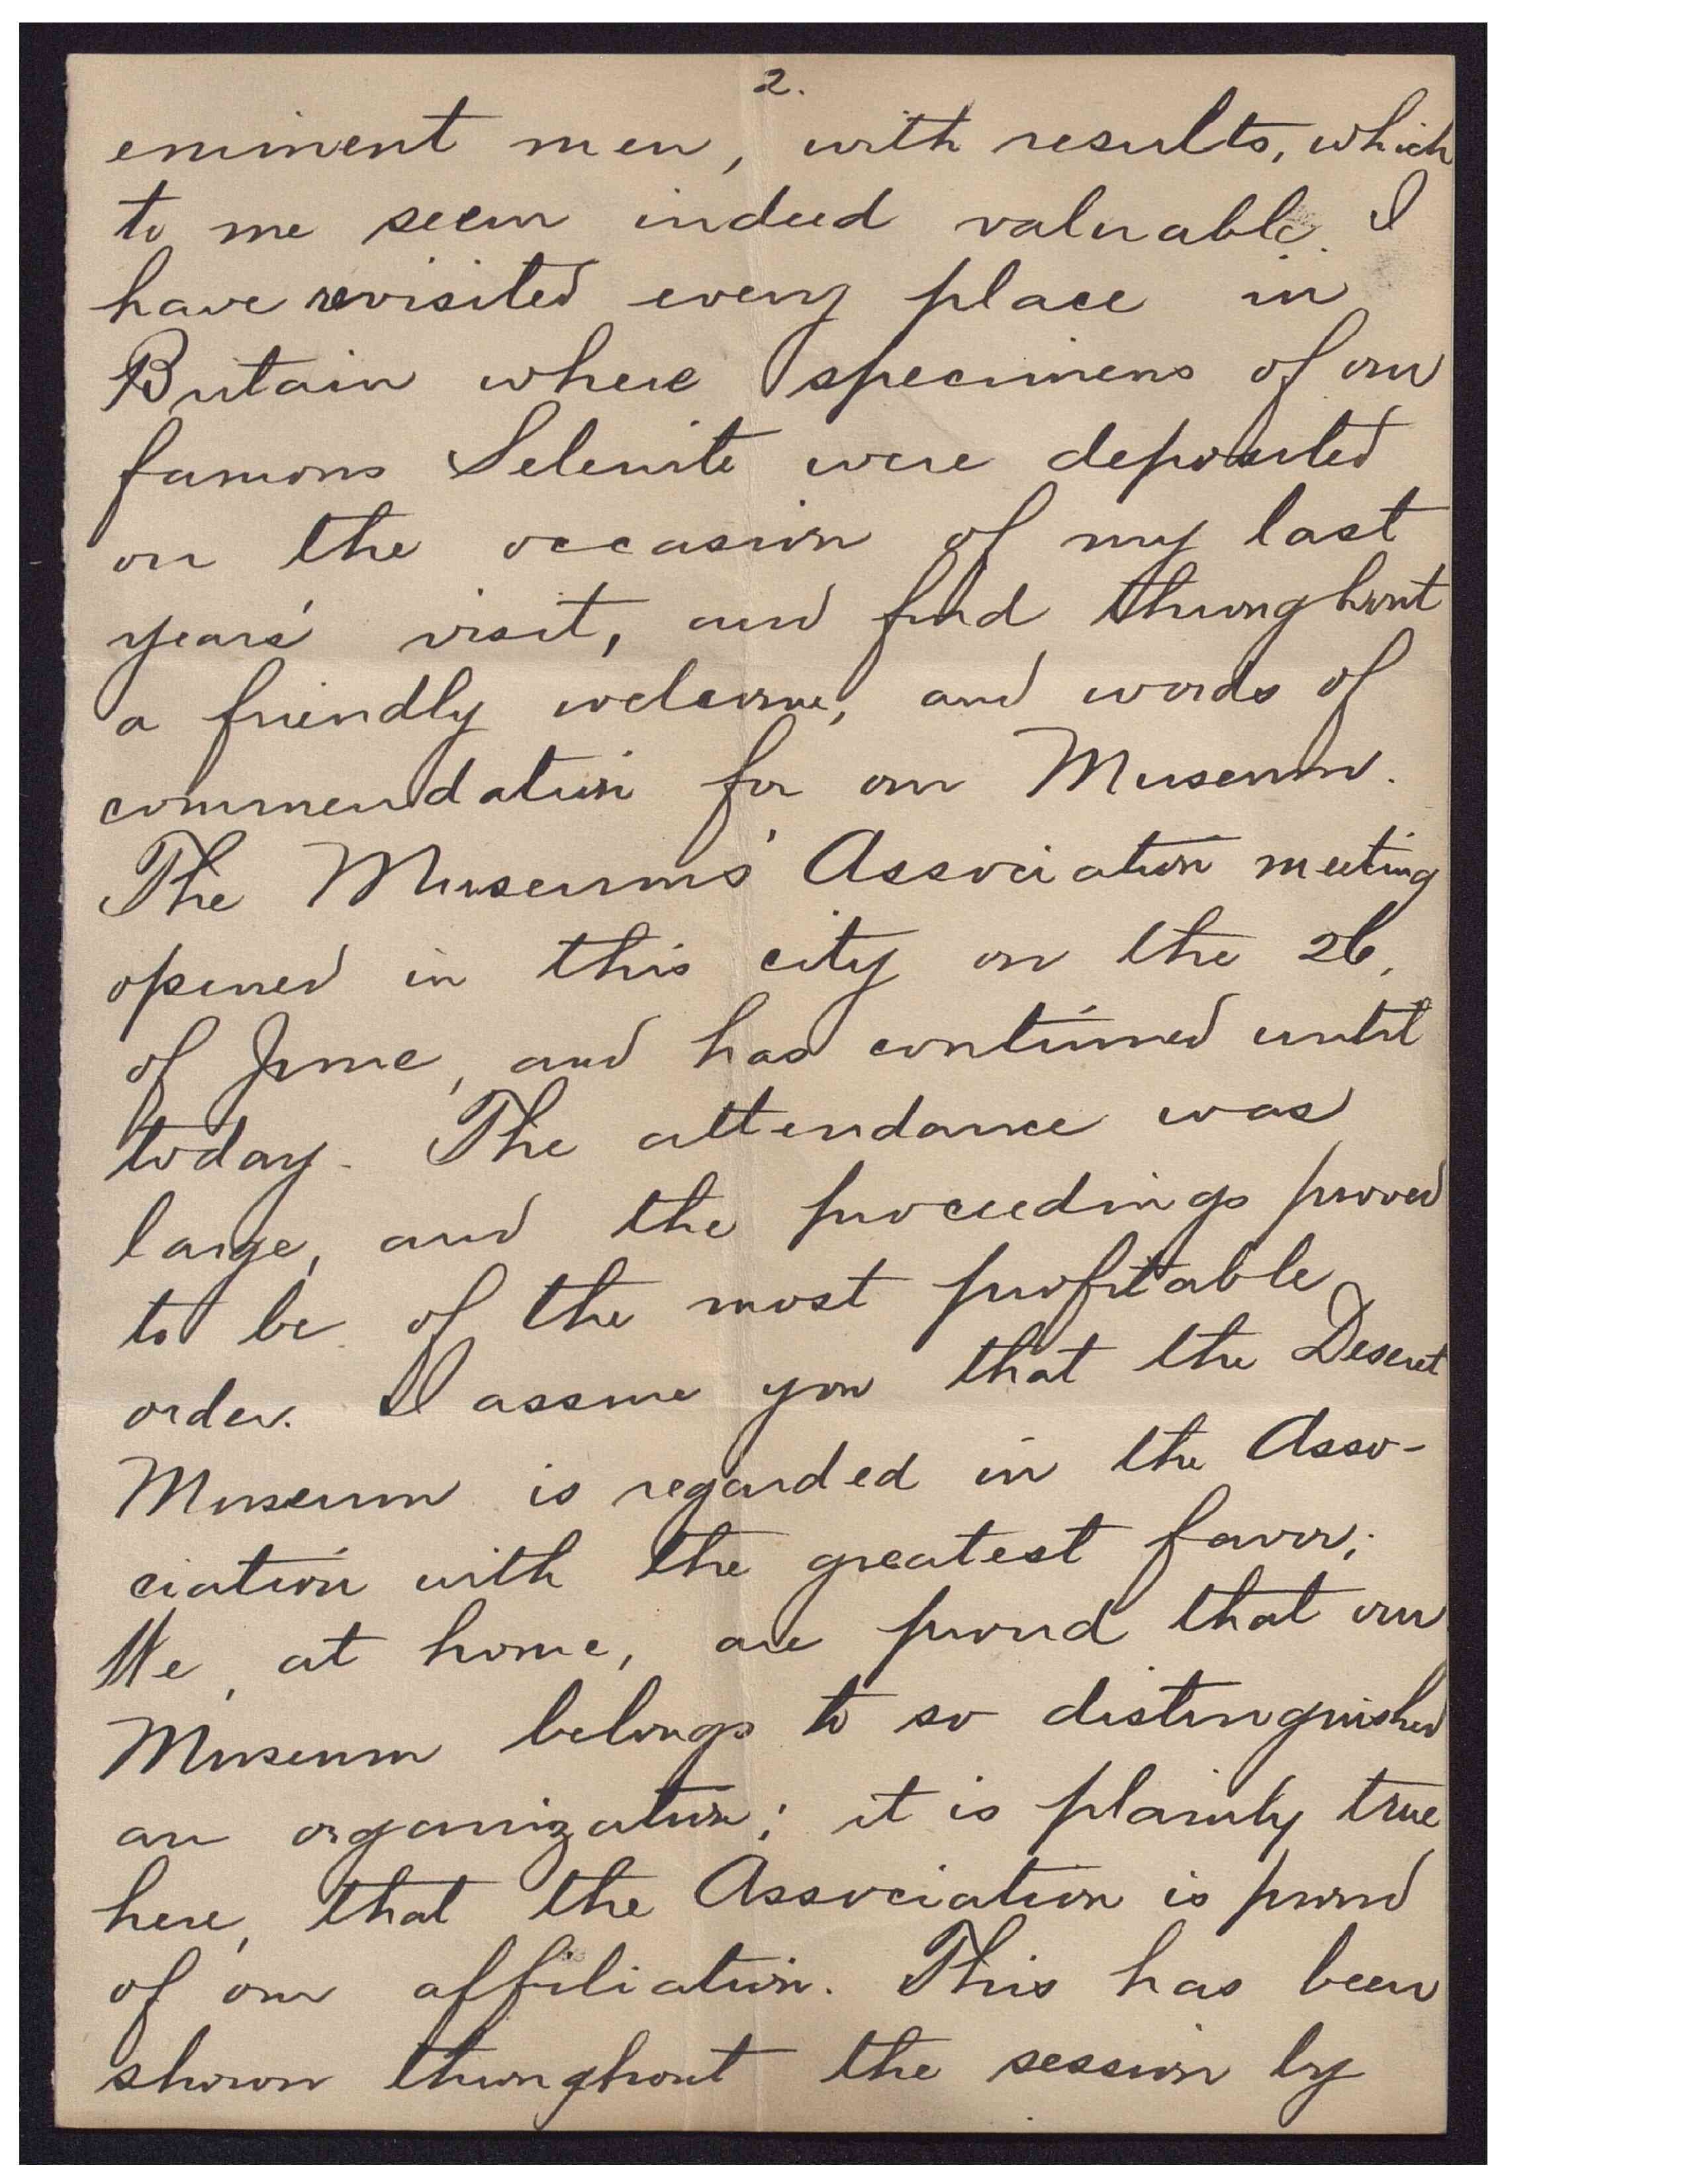 2.
eminent men, with results, which
to me seem indeed valuable. I
have revisited every place in
Britain where specimens of our
famous Selenite were deposited
on the occasion of my last
years' visit, and find throughout
a friendly welcome, and words of
commendation for our Museum.
The Museums' Association meeting
opened in this city on the 26.
of June, and has continued until
today. The attendance was
large, and the proceedings proved
to be of the most profitable
order. I assure you that the Deseret
Museum is regarded in the Asso-
ciation with the greatest favor;
We, at home, are proud that our
Museum belongs to so distinguished
an organization; it is plainly true
here, that the Association is proud
of our affiliation. This has been
shown throughout the session by